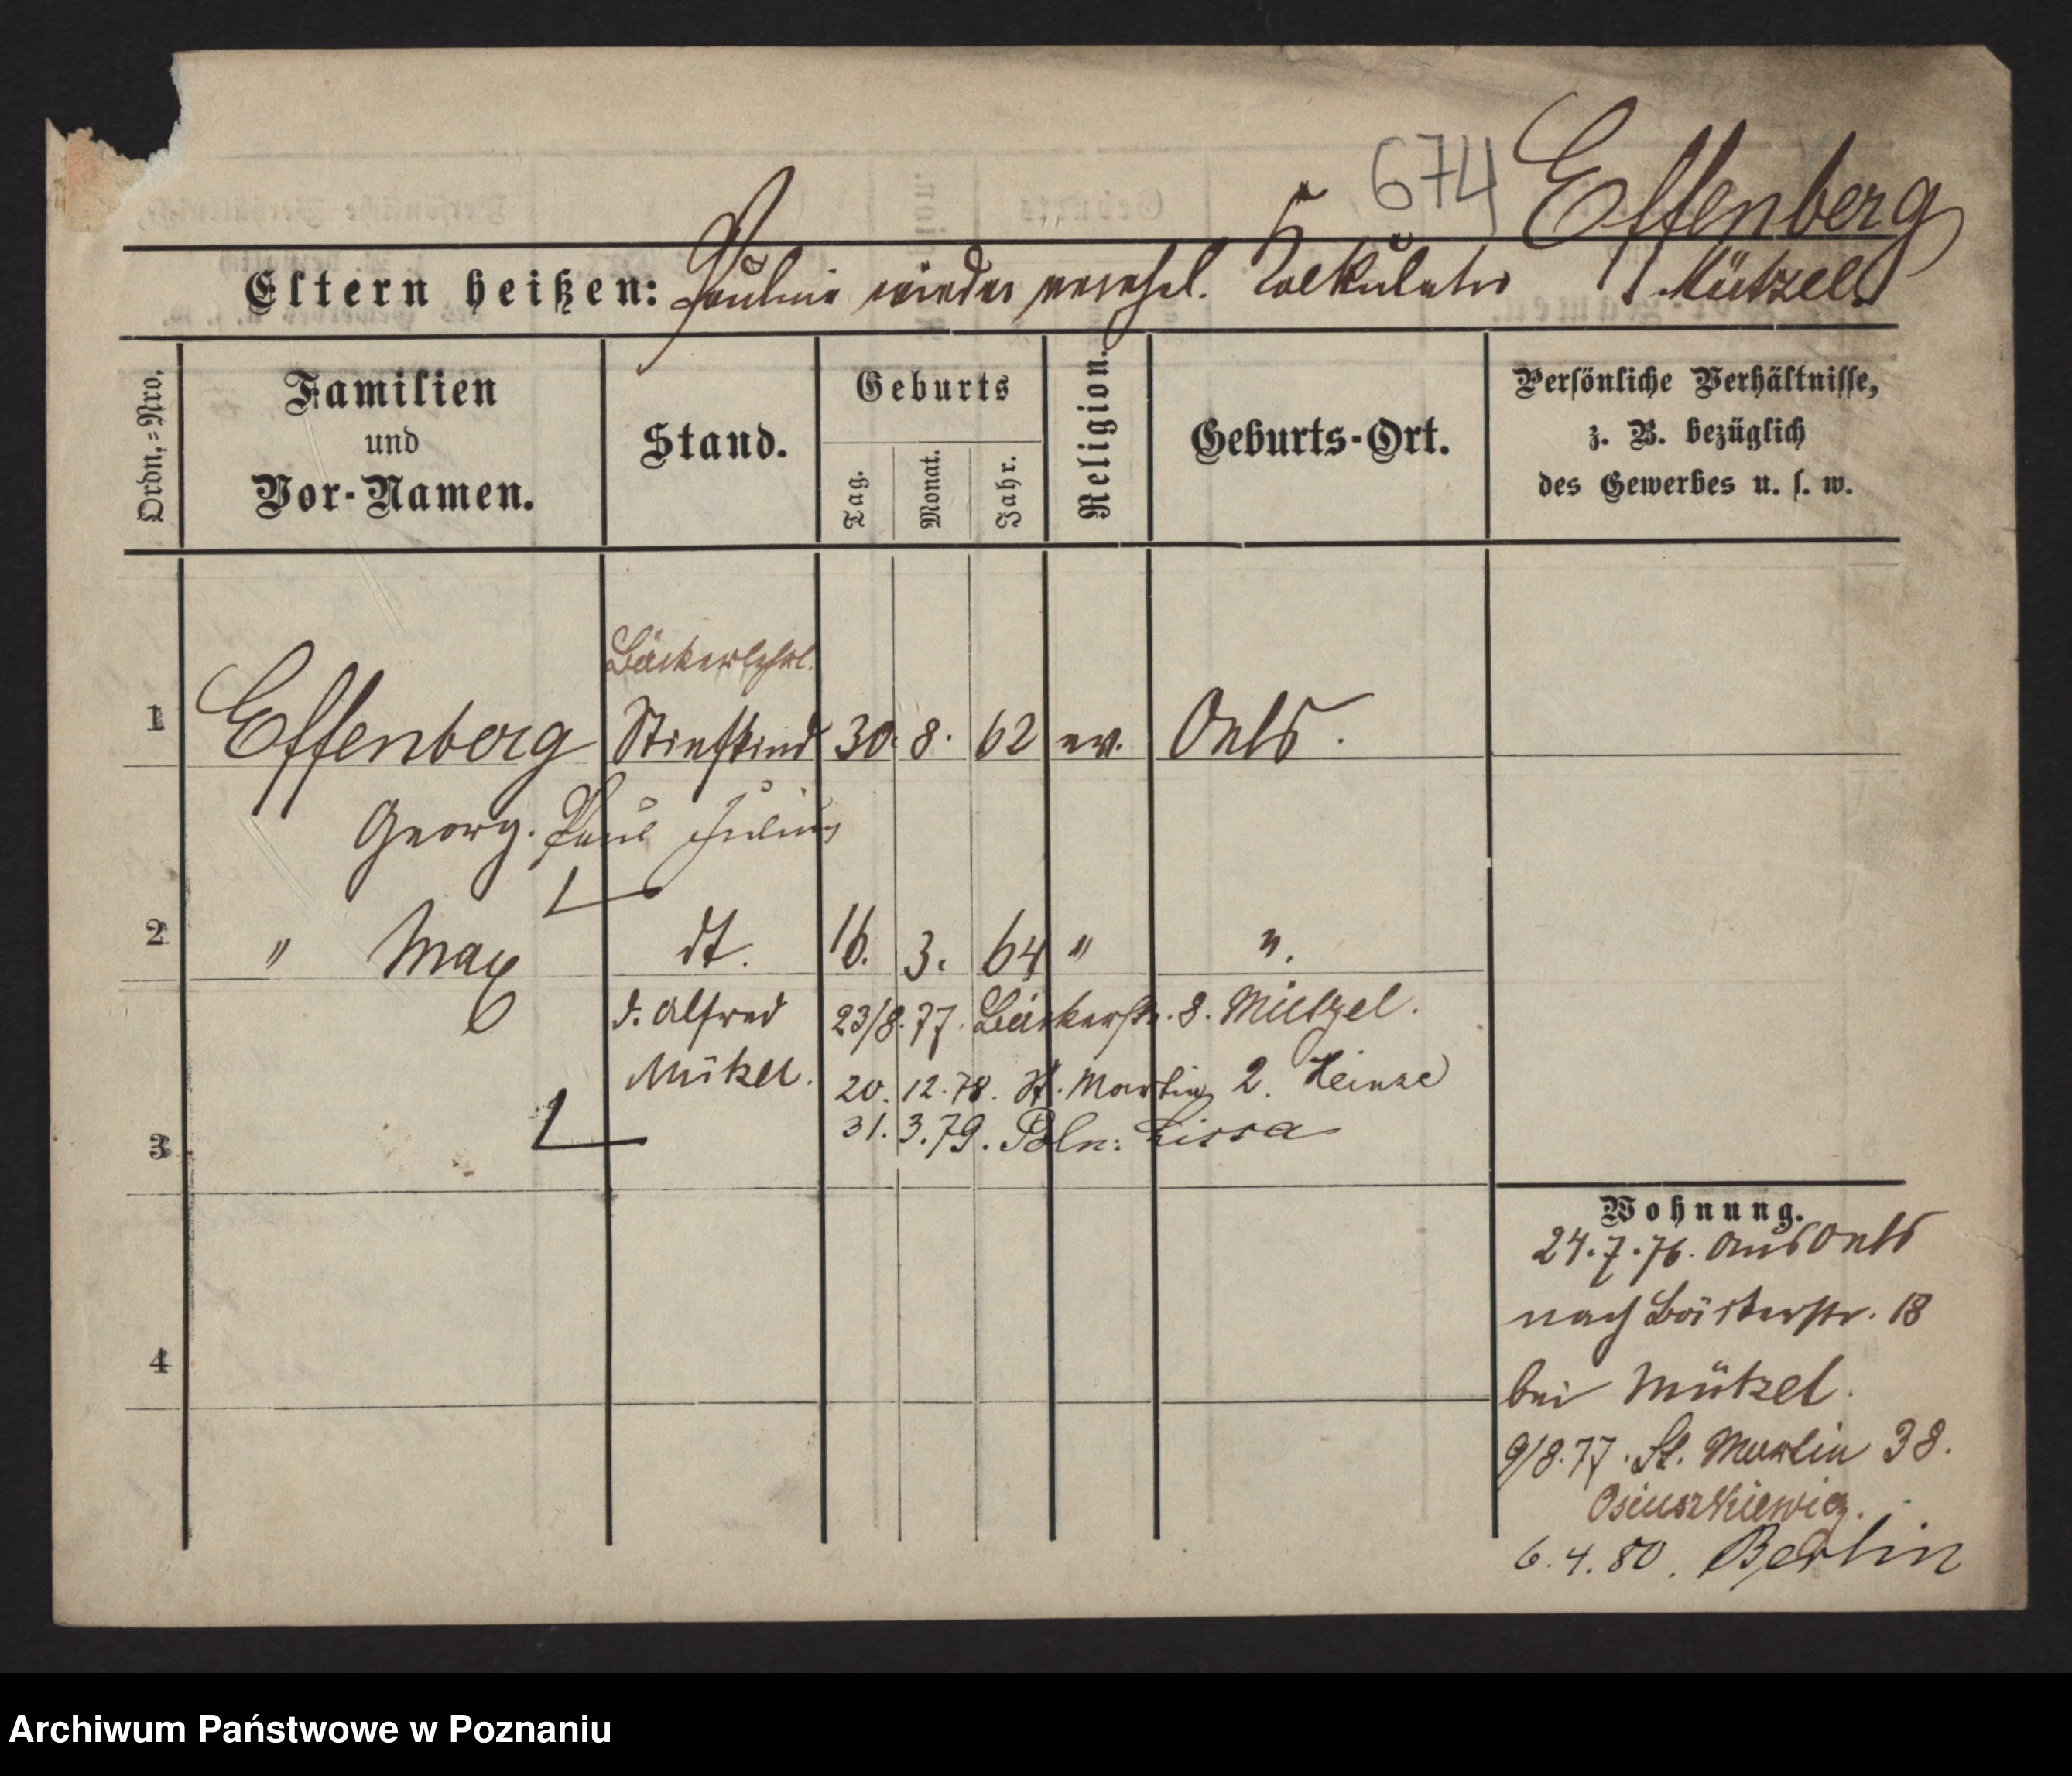 674 Effenberg
Eltern heißen: Pauline wieder vereehel. Kalkulator Mützell
Ordn.=Nro.
Familien
und
Vor-Namen.
Stand.
Geburts
Tag.
Monat.
Jahr.
Religion.
Geburts-Ort.
Persönliche Verhältnisse,
z. B. bezüglich
des Gewerbes u. s. w.
Bäckerlehrl.
1 Effenberg Stiefkind 30. 8. 62 ev. Oels.
Georg. Paul Julius
2 " Max dt. 16. 3. 64 " ".
d. Alfred 23/8.77. Bäckerstr. 8. Mützel.
Mützel. 20. 12. 78. St. Martin 2. Heinze
31. 3. 79. Poln: Lissa
3
4
Wohnung.
24.7.76. aus Oels
nach Bäckerstr. 18
bei Mützel.
9/8.77. St. Martin 38.
6.4.80. Berlin
Archiwum Państwowe w Poznaniu